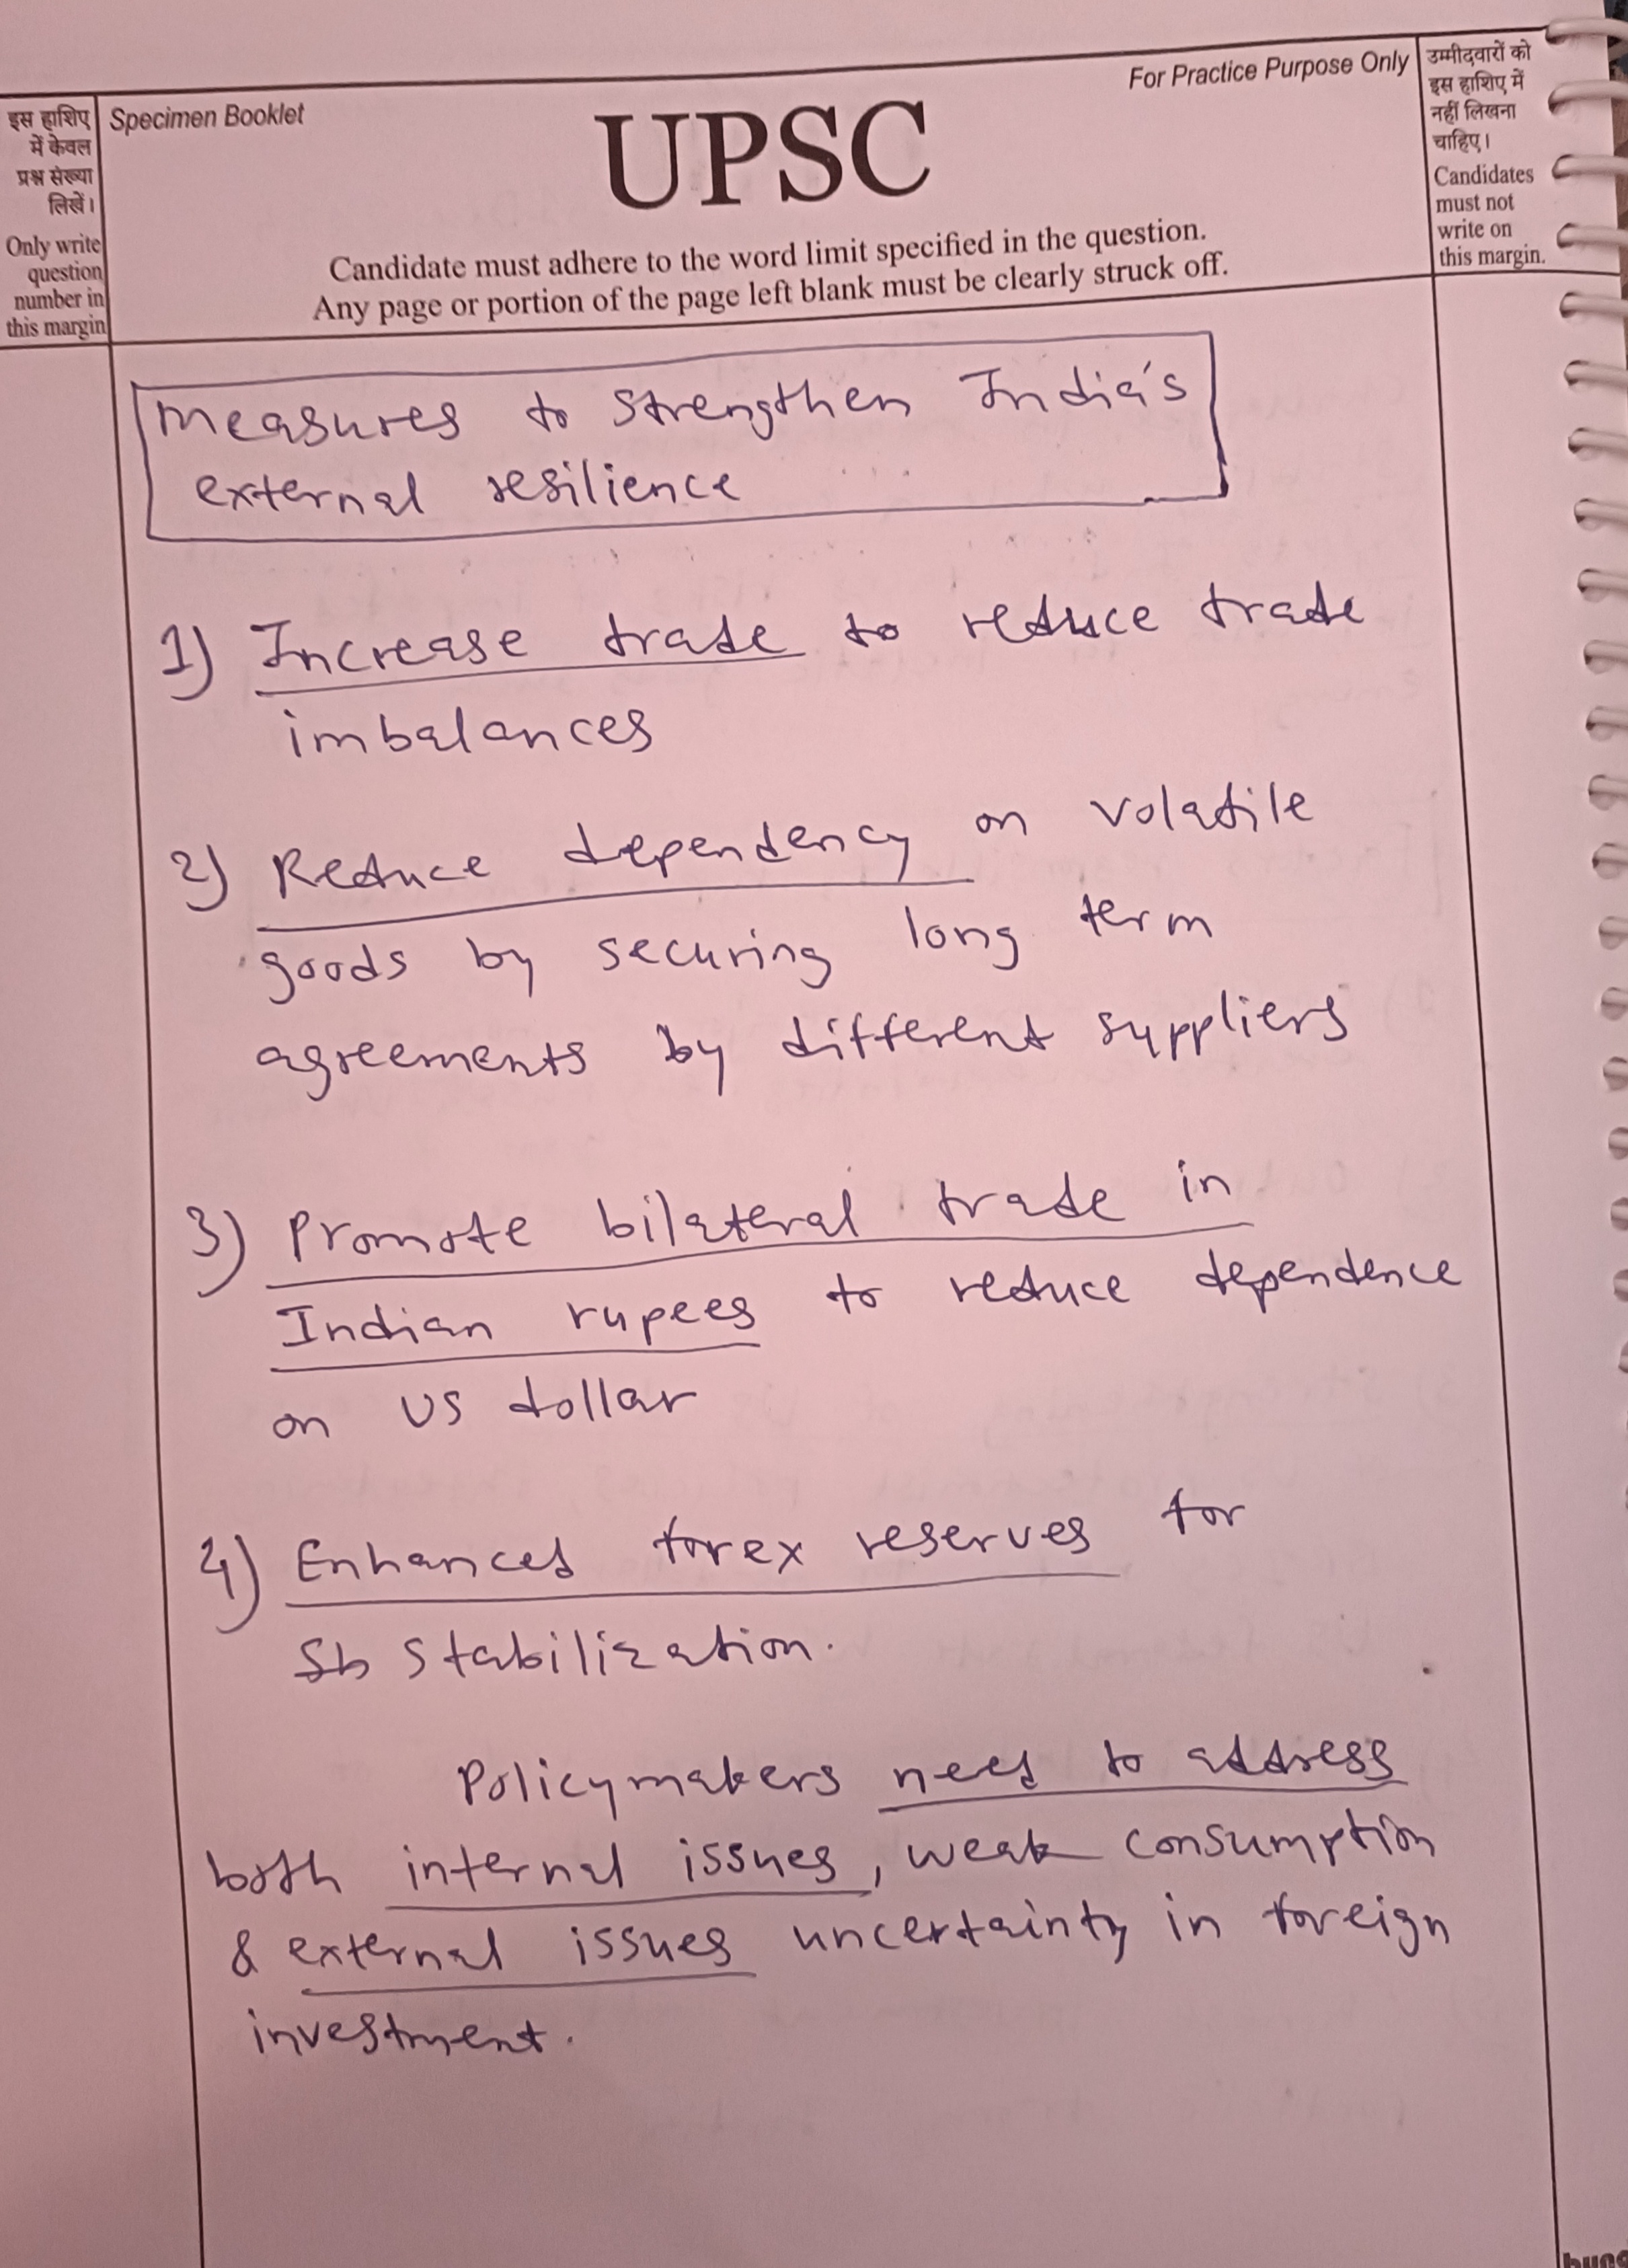 इस हाशिए
में केवल
प्रश्न संख्या
लिखें।
Only write
question
number in
this margin
Specimen Booklet
For Practice Purpose Only
UPSC
Candidate must adhere to the word limit specified in the question.
Any page or portion of the page left blank must be clearly struck off.
उम्मीदवारों को
इस हाशिए में
नहीं लिखना
चाहिए।
Candidates
must not
write on
this margin.
measures to strengthen India's
external resilience
1) Increase trade to reduce trade
imbalances
2) Reduce dependency on volatile
goods by securing long term
agreements by different suppliers
3) Promote bilateral trade in
Indian rupees to reduce dependence
on US dollar
4) Enhanced forex reserves for
stabilization.
Policymakers need to address
both internal issues, weak consumption
& external issues uncertainty in foreign
investment.